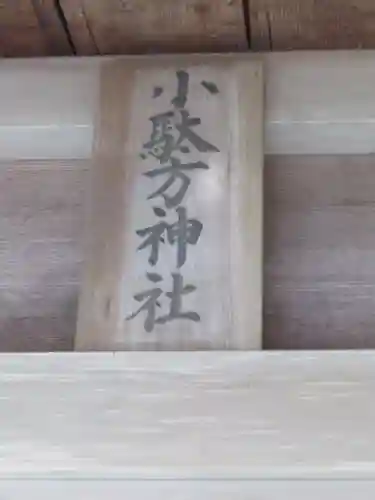 小駄方神社